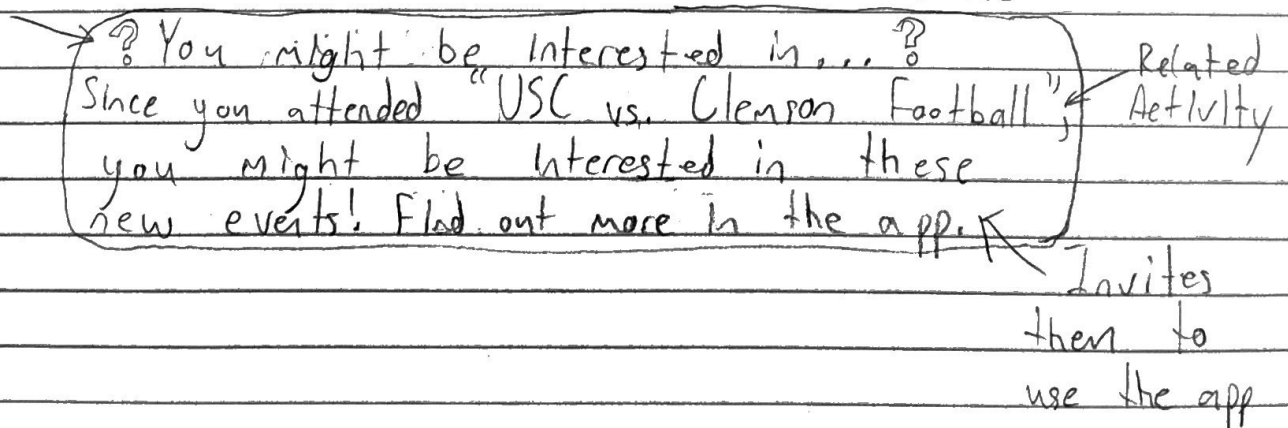 ? You might be interested in... ?
Since you attended "USC vs. Clemson Football",
you might be interested in these
new events! Find out more in the app.
Related
Activity
Invites
them to
use the app